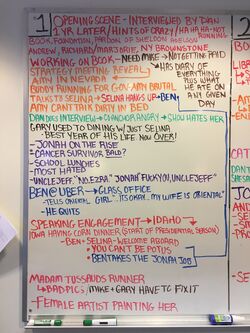 1 OPENING SCENE - INTERVIEWED BY DAN
1 YR LATER/HINTS OF CRAZY/HA HA HA-NOT RUNNING
BOOK, FOUNDATION, PARDON OF SHELDON ADELSON
ANDREW, RICHARD/MARJORIE, NY BROWNSTONE
WORKING ON BOOK - NEED MIKE→NOT GETTING PAID
STRATEGY MEETING REVEAL
→HAS DIARY OF EVERYTHING PLUS WHAT HE ATE ON ANY GIVEN DAY
AMY IN NEVADA
BUDDY RUNNING FOR GOV-AMY BRUTAL
TALKS TO SELINA→SELINA HANGS UP→BEN;
AMY CAN'T TALK DIRTY IN BED
DAN DOES INTERVIEW→CO ANCHOR ANGRY→SHOU HATES HER
GARY USED TO DINING W/ JUST SELINA
-BEST YEAR OF HIS LIFE NOW OVER!
-JONAH ON THE RISE
-CANCER SURVIVOR, BALD?
-SCHOOL LUNCHES
-MOST HATED
-UNCLE JEFF: "NO, EZRA" "JONAH FUCKYOU, UNCLE JEFF"
BEN@UBER→GLASS OFFICE
-TELLS ORIENTAL GIRL "..ITS OKAY.. MY WIFE IS ORIENTAL"
-HE QUITS
SPEAKING ENGAGEMENT→IDAHO
(IOWA HAVING CORN DINNER (START OF PRESIDENTIAL SEASON)
-BEN+SELINA-WELCOME ABOARD
→YOU CAN'T BE POTUS
→BEN TAKES THE JONAH JOB
MADAM TUSSAUDS RUNNER
→BAD PICS/MIKE+GARY HAVE TO FIX IT
-FEMALE ARTIST PAINTING HER
2